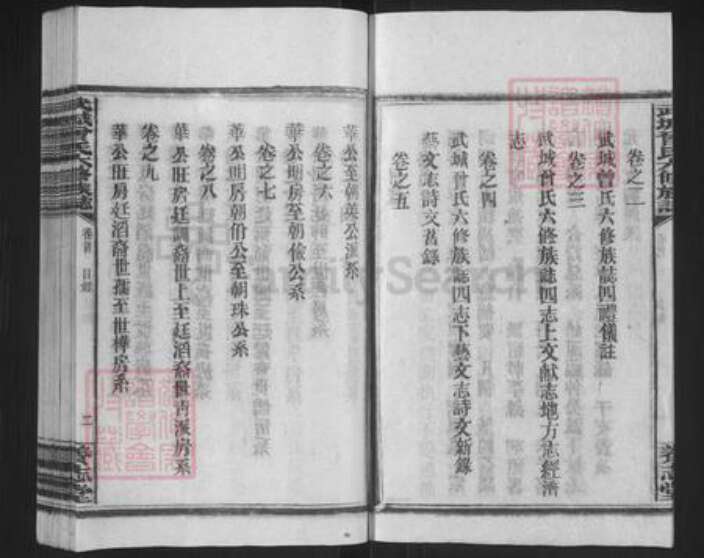 武城曾氏六修族誌
卷之二
武城曾氏六修族誌四禮儀註
卷之三
武城曾氏六修族誌四志上文献志地方志經濟
志
卷之四
武城曾氏六修族誌四志下藝文志詩文新錄
藝文志詩文舊錄
卷之五
華公至朝英公派系
卷之六
華公明房至朝儉公系
卷之七
華公明房朝佾公至朝珠公系
卷之八
華公旺房廷
裔世上至廷滔裔世
派房系
卷之九
華公旺房廷滔裔世
至世樺房系
武城曾氏六修族誌
卷首 目錄
二
FamilySearch